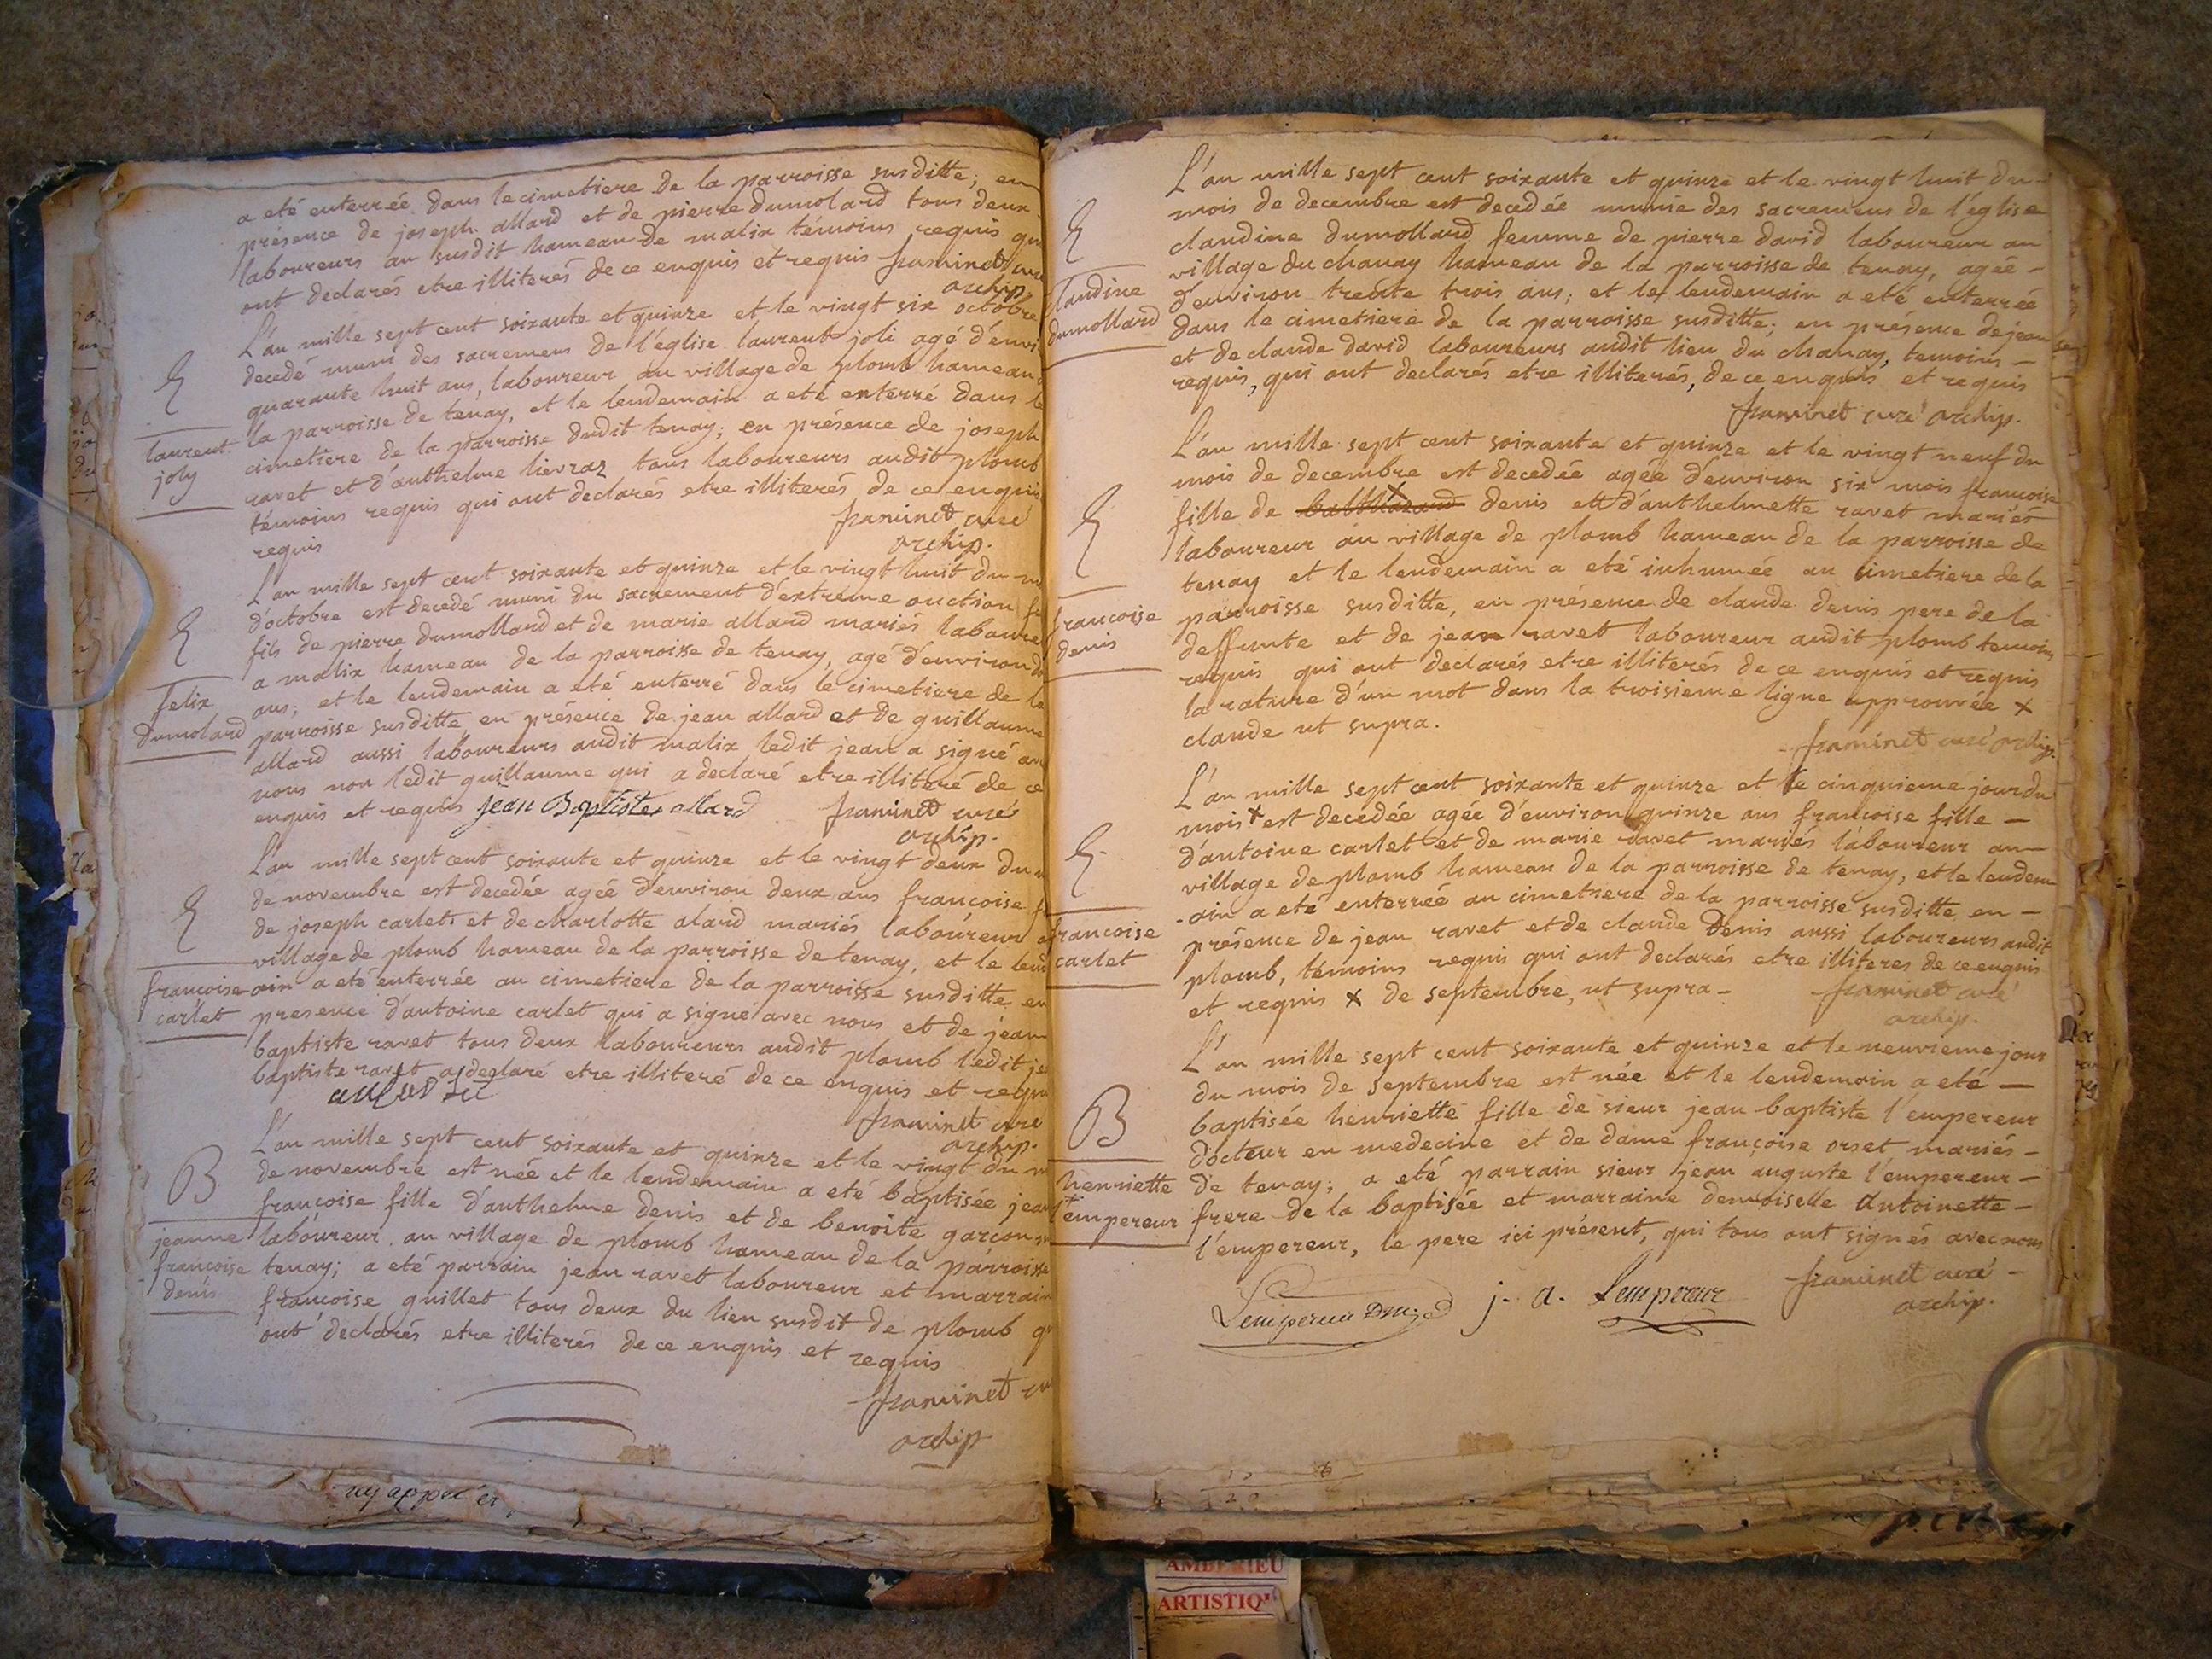 a eté enterrée dans le cimetiere de la parroisse susditte; en
présence de joseph allard et de pierre dumolard tous deux
laboureurs au susdit hameau de malix témoins requis qui
ont declarés etre illiterés de ce enquis et requis framinet curé
archip.
L'an mille sept cent soixante et quinze et le vingt six octobre
decedé muni des sacremens de l'eglise laurent joli agé d'envi
quarante huit ans, laboureur au village de plomb hameau
la parroisse de tenay, et le lendemain a eté enterré dans le
cimetiere de la parroisse dudit tenay; en présence de joseph
ravet et d'anthelme lievraz tous laboureurs audit plomb
témoins requis qui ont declarés etre illiterés de ce enquis
requis
framinet curé
archip.
E
laurent
joly
L'an mille sept cent soixante et quinze et le vingt huit du
d'octobre est decedé muni du sacrement d'extreme onction
fils de pierre dumollard et de marie allard mariés laboure
a malix hameau de la parroisse de tenay, agé d'environ
ans; et le lendemain a eté enterré dans le cimetiere de la
parroisse susditte en présence de jean allard et de guillaume
allard aussi laboureurs audit malix ledit jean a signé
nous non ledit guillaume qui a declaré etre illiteré de ce
enquis et requis jean Baptiste allard framinet curé
archip.
E
felix
dumolard
L'an mille sept cent soixante et quinze et le vingt deux du
de novembre est decedée agée d'environ deux ans françoise
de joseph carlet et de charlotte alard mariés laboureur
village de plomb hameau de la parroisse de tenay, et le lend
ain a eté enterrée au cimetiere de la parroisse susditte en
presence d'antoine carlet qui a signé avec nous et de jean
baptiste ravet tous deux laboureurs audit plomb ledit
baptiste ravet a declaré etre illiteré de ce enquis et
framinet curé
archip.
E
francoise
carlet
L'an mille sept cent soixante et quinze et le vingt du
de novembre est née et le lendemain a eté baptisée
françoise fille d'anthelme denis et de benoite garcon
laboureur au village de plomb hameau de la parroisse
tenay; a eté parrain jean ravet laboureur et marraine
francoise guillet tous deux du lieu susdit de plomb
ont declarés etre illiterés de ce enquis et requis
framinet
archip
B
jeanne
francoise
denis
L'an mille sept cent soixante et quinze et le vingt huit du
mois de decembre est decedée munie des sacremens de l'eglise
claudine dumollard femme de pierre david laboureur au
village du chanay hameau de la parroisse de tenay, agée
d'environ trente trois ans; et le lendemain a eté enterrée
dans le cimetiere de la parroisse susditte; en présence de jean
et de claude david laboureurs audit lieu du chanay, temoins
requis, qui ont declarés etre illiterés, de ce enquis et requis
framinet curé archip.
E
claudine
dumollard
L'an mille sept cent soixante et quinze et le vingt neuf du
mois de decembre est decedée agée d'environ six mois françoise
fille de denis et d'anthelmette ravet mariés
laboureur au village de plomb hameau de la parroisse de
tenay et le lendemain a eté inhumée au cimetiere de la
parroisse susditte, en présence de claude denis pere de la
deffunte et de jean ravet laboureur audit plomb temoins
requis qui ont declarés etre illiterés de ce enquis et requis
la rature d'un mot dans la troisieme ligne approuvée x
claude ut supra.
framinet curé archip.
E
francoise
denis
L'an mille sept cent soixante et quinze et le cinquieme jour du
mois x est decedée agée d'environ quinze ans francoise fille
d'antoine carlet et de marie ravet mariés laboureur au
village de plomb hameau de la parroisse de tenay, et le lendem
ain a eté enterrée au cimetiere de la parroisse susditte en
présence de jean ravet et de claude Denis aussi laboureurs audit
plomb, témoins requis qui ont declarés etre illiteres de ce enquis
et requis x de septembre, ut supra
framinet curé
archip.
E
francoise
carlet
L'an mille sept cent soixante et quinze et le neuvieme jour
du mois de septembre est née et le lendemain a eté
baptisée henriette fille de sieur jean baptiste l'empereur
docteur en medecine et de dame françoise orset mariés
de tenay; a eté parrain sieur jean auguste l'empereur
frere de la baptisée et marraine demoiselle Antoinette
l'empereur, le pere ici présent, qui tous ont signés avec nous
Lempereur j. a. Lempereur framinet curé
archip.
B
henriette
l'empereur
AMBERIEU
ARTISTIQU